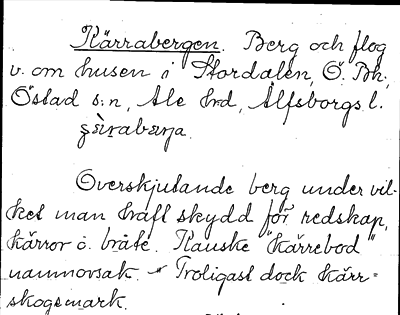 Kärrabergen. Berg och flog
v. om husen i Stordalen, Ö. Bh.,
Östad s:n, Ale hd, Älfsborgs l.
Överskjutande berg under vil-
ket man haft skydd för redskap,
kärror o. bråte. Kanske "Kärrebod"
namnorsak. - Troligast dock kärr=
skogsmark.